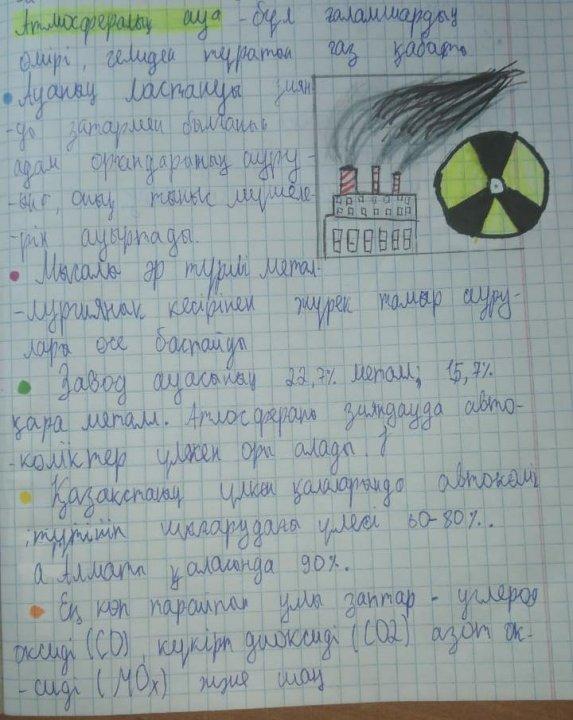 Атмосфералық ауа - бұл ғаламшардың
өмірі, тұратын газ қабаты
Ауаның ластануы зиян-
-ды заттармен былғаныс
адам органдарының ауру-
-ына, оның тыныс мүшеле-
-рін ауыртады.
Мысалы әр түрлі метал-
-лургиянық кесірінен жүрек тамыр ауру-
лары өсе бастайды
Завод ауасының 22,7% металл; 15,7%
қара металл. Атмосфераны зияндауда авто-
-көліктер үлкен орн алады.
Қазақстаның үлкен қалаларында автокөлі
түтінін шығарудағы үлесі 60-80%.
а Алматы қаласында 90%.
Ең көп тарайтын улы заттар - углерод
оксиді (CO), күкірт диоксиді (CO2) азот ок-
-сиді (MOx) және шаң